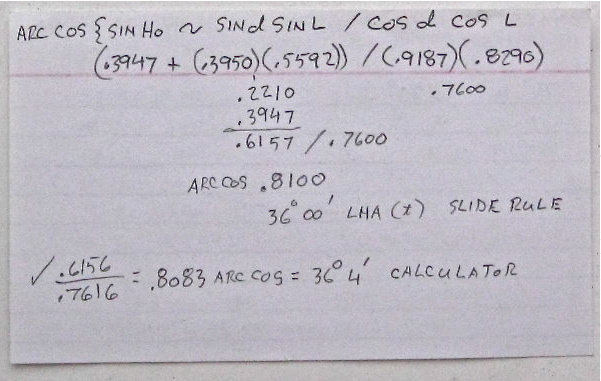 ARC COS {SIN Ho ~ SIN d SIN L / COS d COS L
(.3947 + (.3950)(.5592)) / (.9187)(.8290)
.2210 .7600
.3947
.6157 / .7600
ARC COS .8100
36° 00' LHA (t) SLIDE RULE
✓ .6156
.7616 = .8083 ARC COS = 36° 4' CALCULATOR